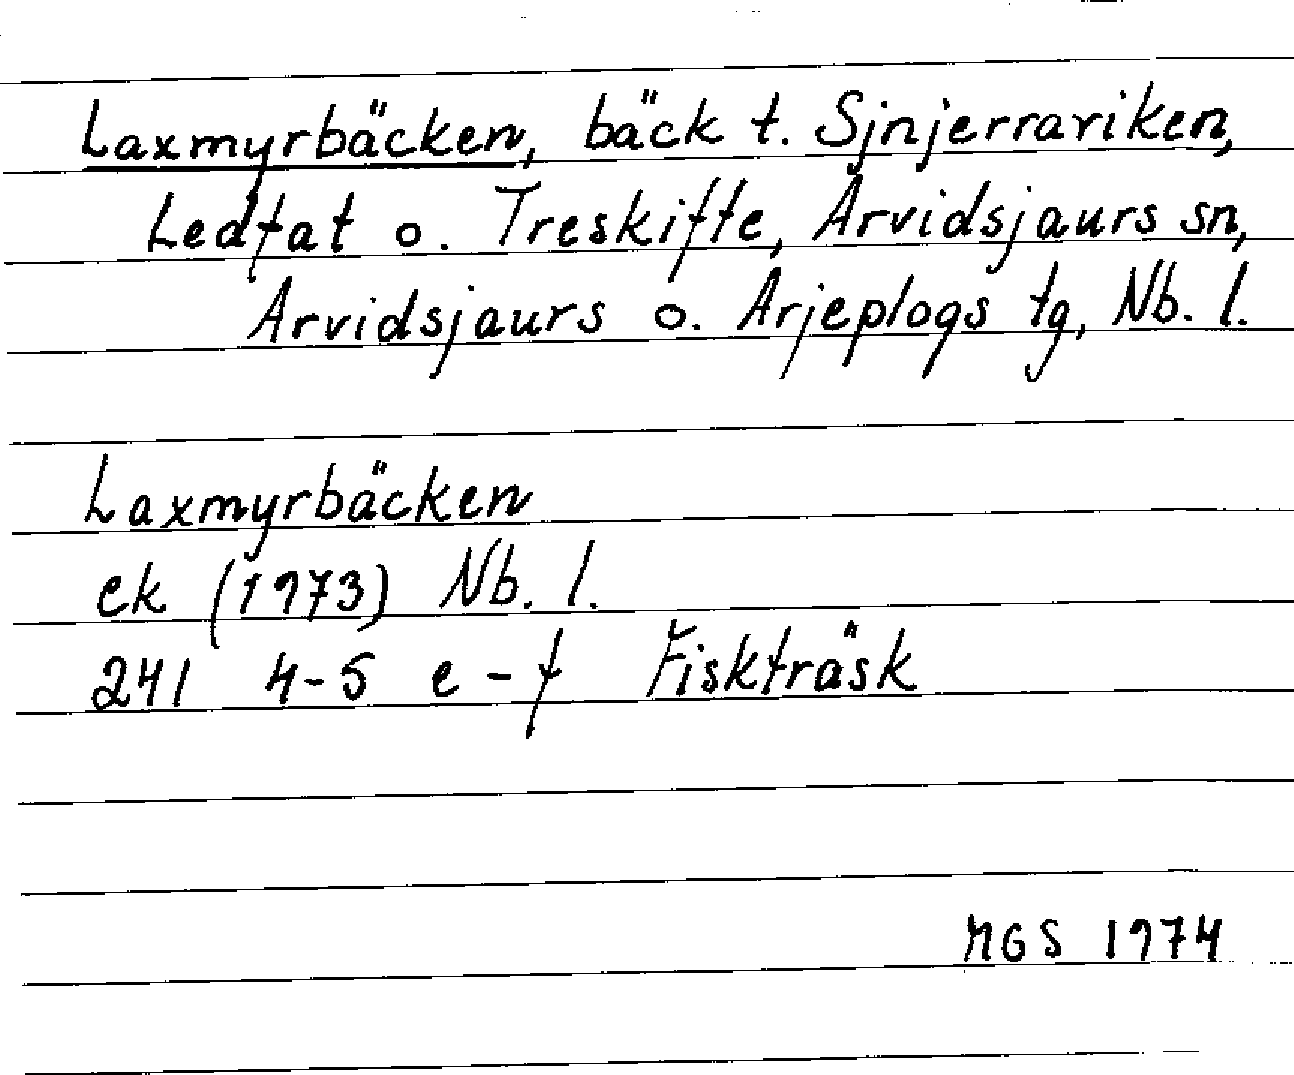 Laxmyrbäcken, bäck t. Sjnjerraviken,
Ledfat o. Treskifte, Arvidsjaurs sn,
Arvidsjaurs o. Arjeplogs tg, Nb. l.
Laxmyrbäcken
ek (1973) Nb. l.
241 4-5 e-f Fiskträsk
MGS 1974